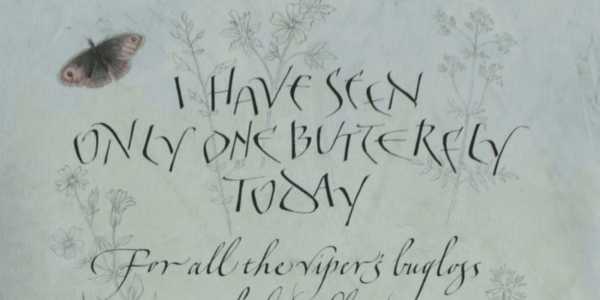 I HAVE SEEN
ONLY ONE BUTTERFLY
TODAY
For all the viper's bugloss